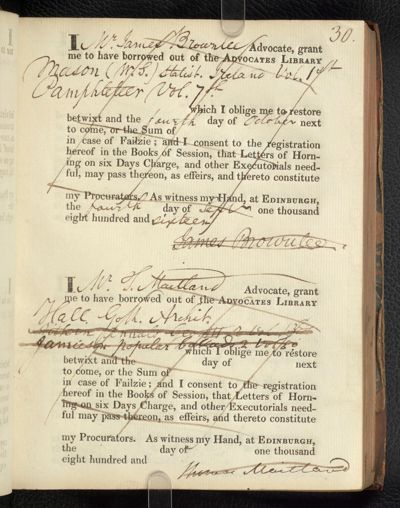 30.
I Mr. James Brownlee Advocate, grant
me to have borrowed out of the ADVOCATES LIBRARY
Mason (W. S.) Statist. Ireland Vol. 1st
Pamphleteer Vol. 7th
which I oblige me to restore
betwixt and the fourth day of October next
to come, or the Sum of
in case of Failzie; and I consent to the registration
hereof in the Books of Session, that Letters of Horn-
ing on six Days Charge, and other Executorials need-
ful, may pass thereon, as effeirs, and thereto constitute
my Procurators. As witness my Hand, at EDINBURGH,
the fourth day of Septr. one thousand
eight hundred and sixteen
James Brownlee
I Mr. T. Maitland Advocate, grant
me to have borrowed out of the ADVOCATES LIBRARY
Hall Goth. Archit.
Jamieson popular ballads 2 vols
which I oblige me to restore
betwixt and the day of next
to come, or the Sum of
in case of Failzie; and I consent to the registration
hereof in the Books of Session, that Letters of Horn-
ing on six Days Charge, and other Executorials need-
ful may pass thereon, as effeirs, and thereto constitute
my Procurators. As witness my Hand, at EDINBURGH,
the day of one thousand
eight hundred and
Thomas Maitland